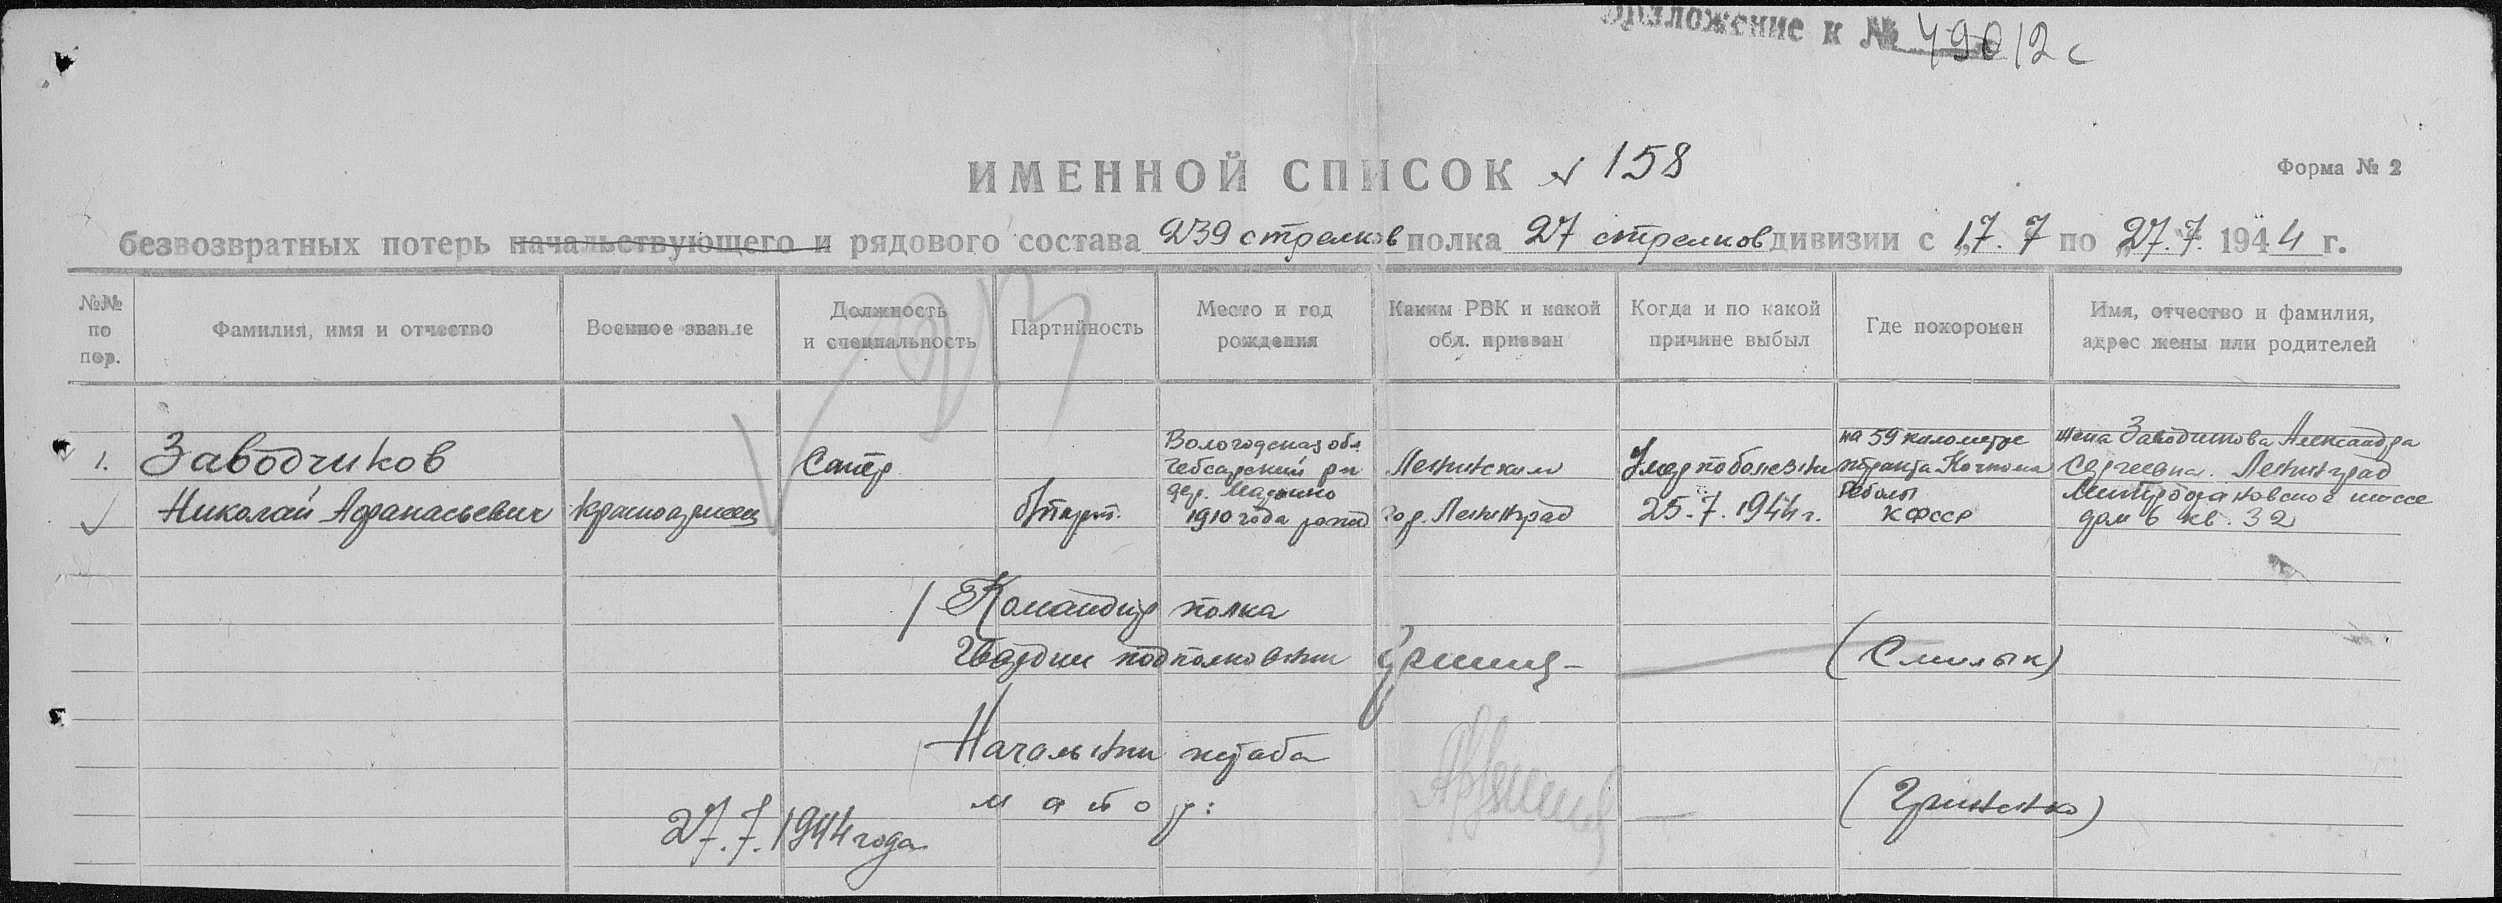 Приложение к № 49012с
ИМЕННОЙ СПИСОК № 158
Форма № 2
безвозвратных потерь начальствующего и рядового состава 239 стрелков полка 27 стрелков дивизии с 17.7 по 27.7. 1944 г.
№№ по пор.
Фамилия, имя и отчество
Военное звание
Должность и специальность
Партийность
Место и год рождения
Каким РВК и какой обл. призван
Когда и по какой причине выбыл
Где похоронен
Имя, отчество и фамилия, адрес жены или родителей
1.
Заводчиков
Николай Афанасьевич
Красноармеец
Сапер
б/парт.
Вологодская обл.
Чебсарский рн
дер.
1910 года рожд
Ленинским
гор. Ленинград
Умер по болезни
25.7.1944 г.
на 59 километре
тракта Кочкома
Реболы
КФССР
жена Заводчикова Александра
Сергеевна. Ленинград
шоссе
дом 6 кв. 32
Командир полка
Гвардии подполковник
(Смилык)
Начальник штаба
майор:
(Гриненко)
27.7.1944 года